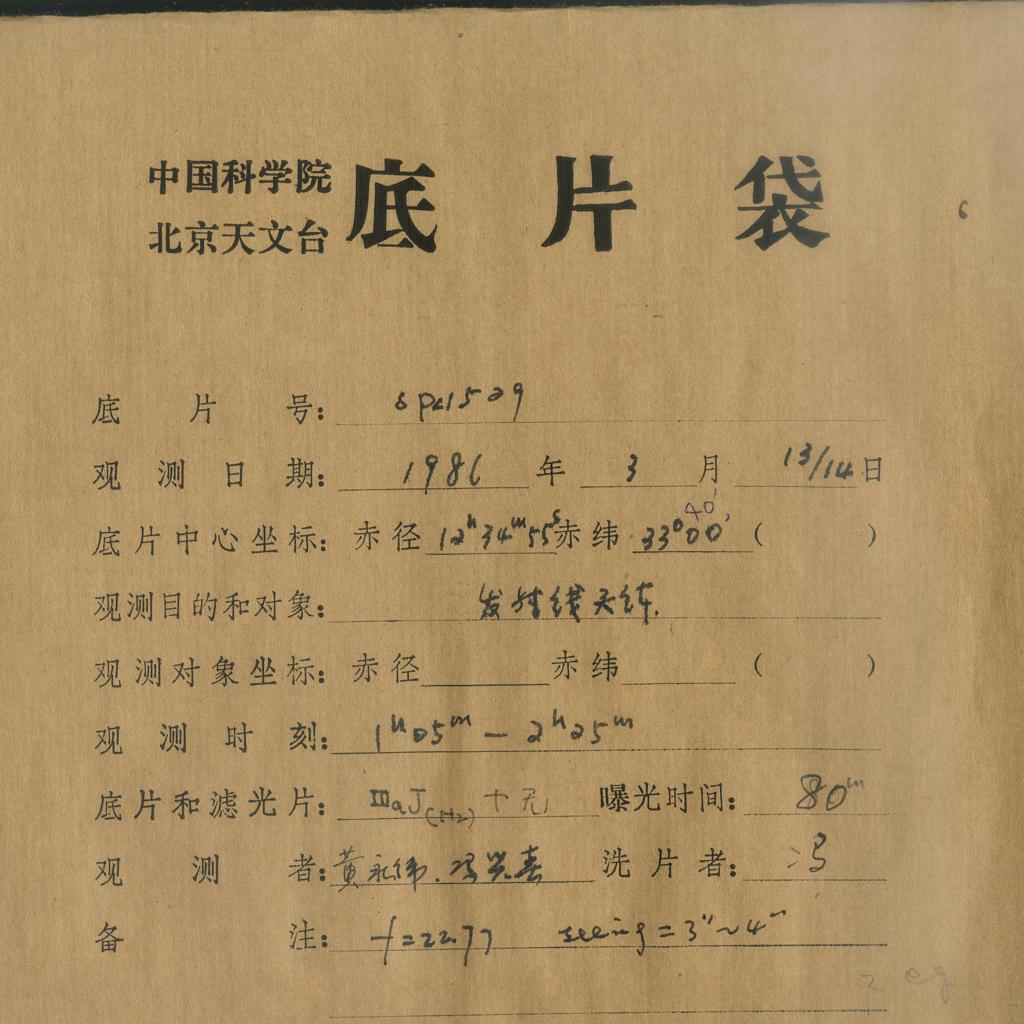 中国科学院
北京天文台
底片袋
6
底片号: sp11529
观测日期: 1986 年 3 月 13/14 日
40'
底片中心坐标: 赤径 12h34m55s 赤纬 33°00' ( )
观测目的和对象: 发射线天体.
观测对象坐标: 赤径 赤纬 ( )
观测时刻: 1h05m — 2h25m
底片和滤光片: ⅢaJ(H2) + 无 曝光时间: 80m
观测者: 黄永伟. 冯兴春 洗片者: 冯
备注: f=22.77 seeing = 3"~4"